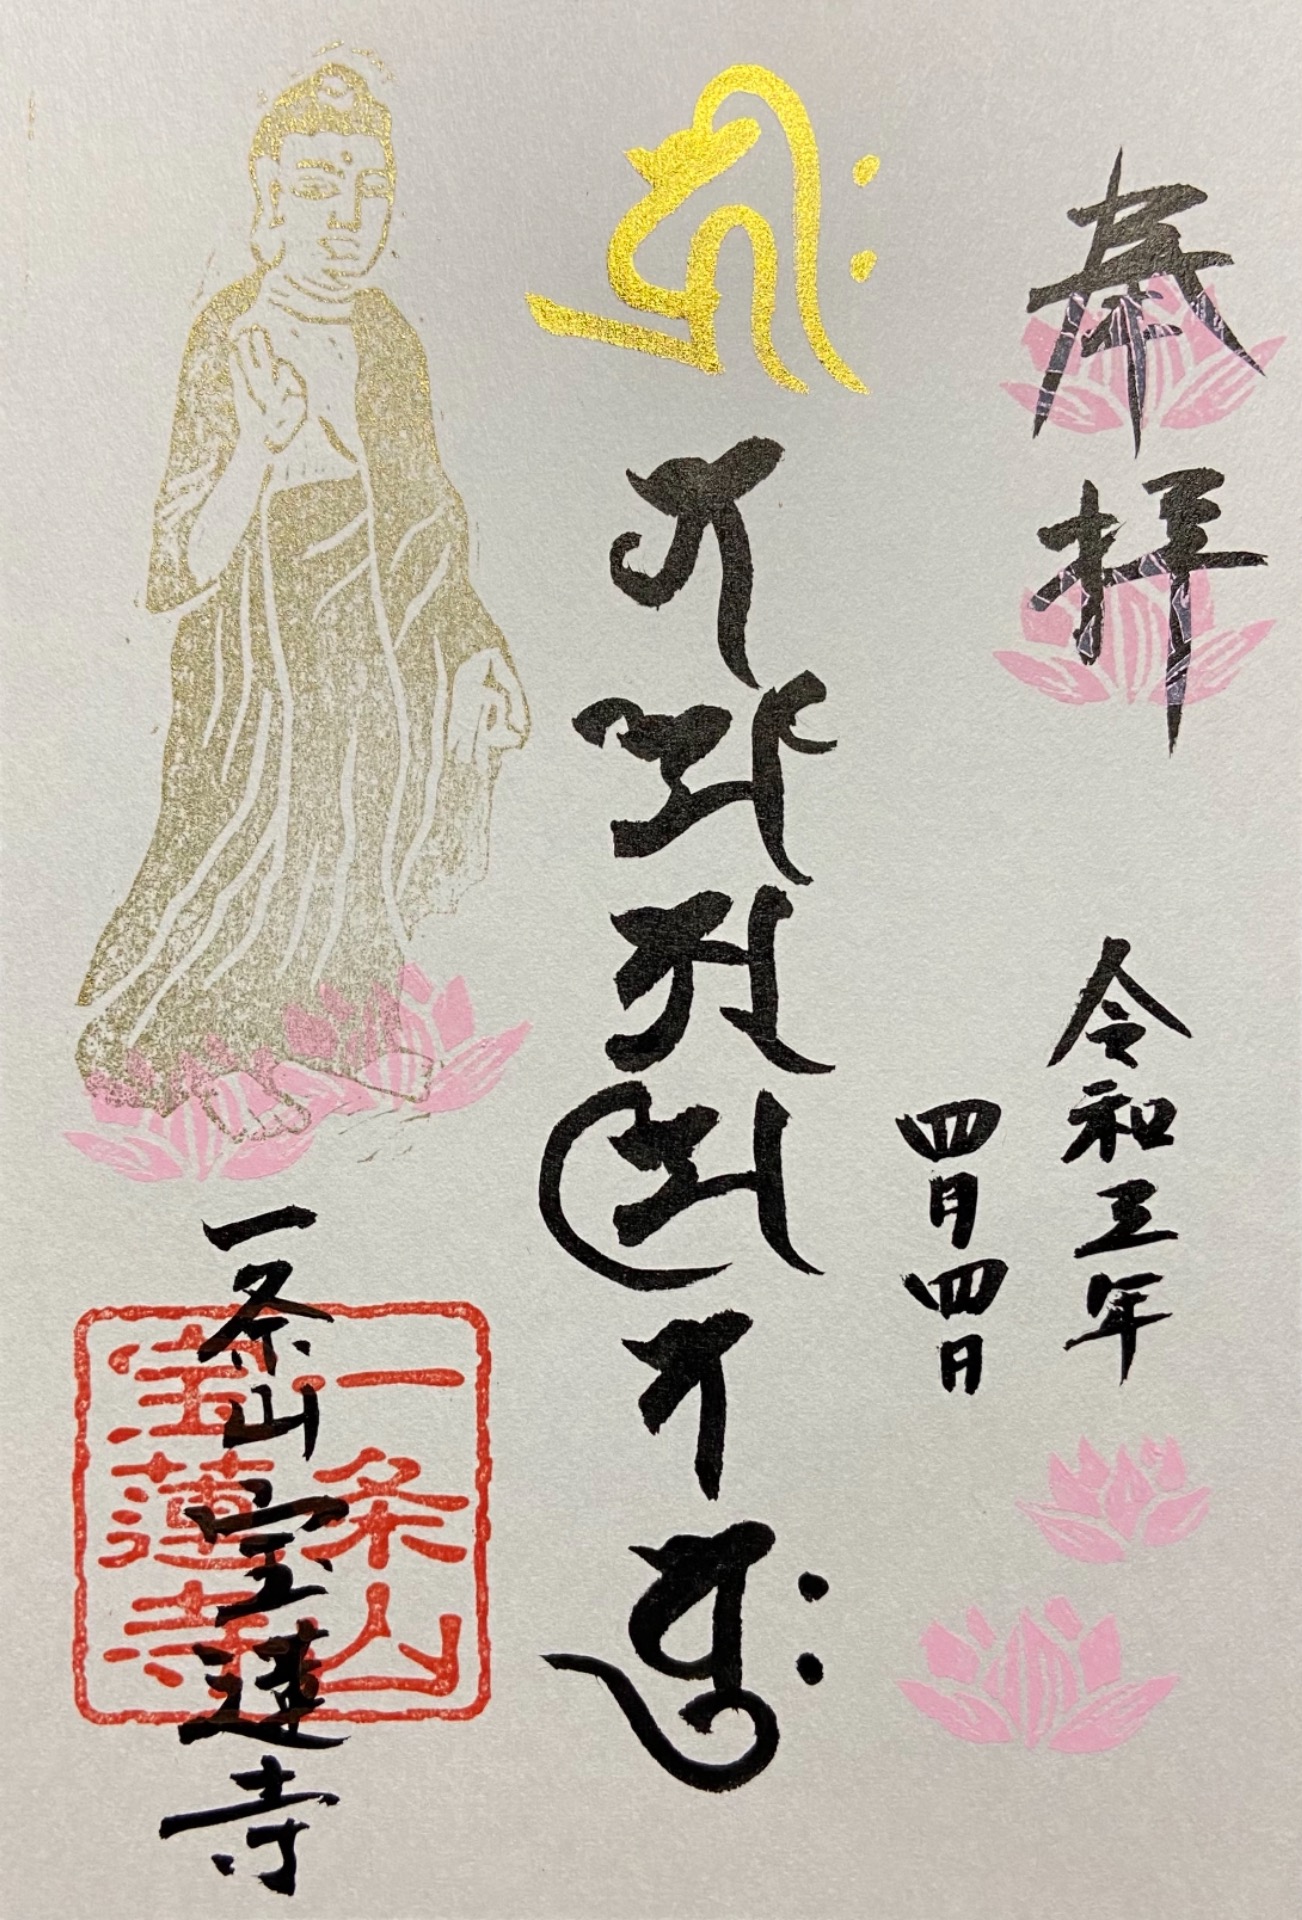 奉拝
令和三年
四月四日
𑖮𑖿𑖨𑖱𑖾
𑖡𑖦𑖺𑖀𑖦𑖰𑖝𑖧𑖲𑖾
一条山宝蓮寺
一条山
宝蓮寺